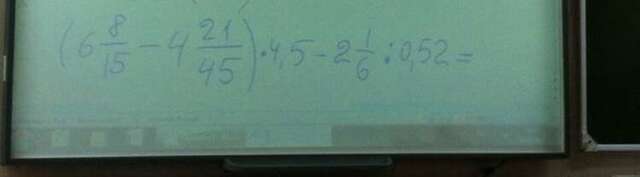 (6 8/15 - 4 21/45) · 4,5 - 2 1/6 : 0,52 =